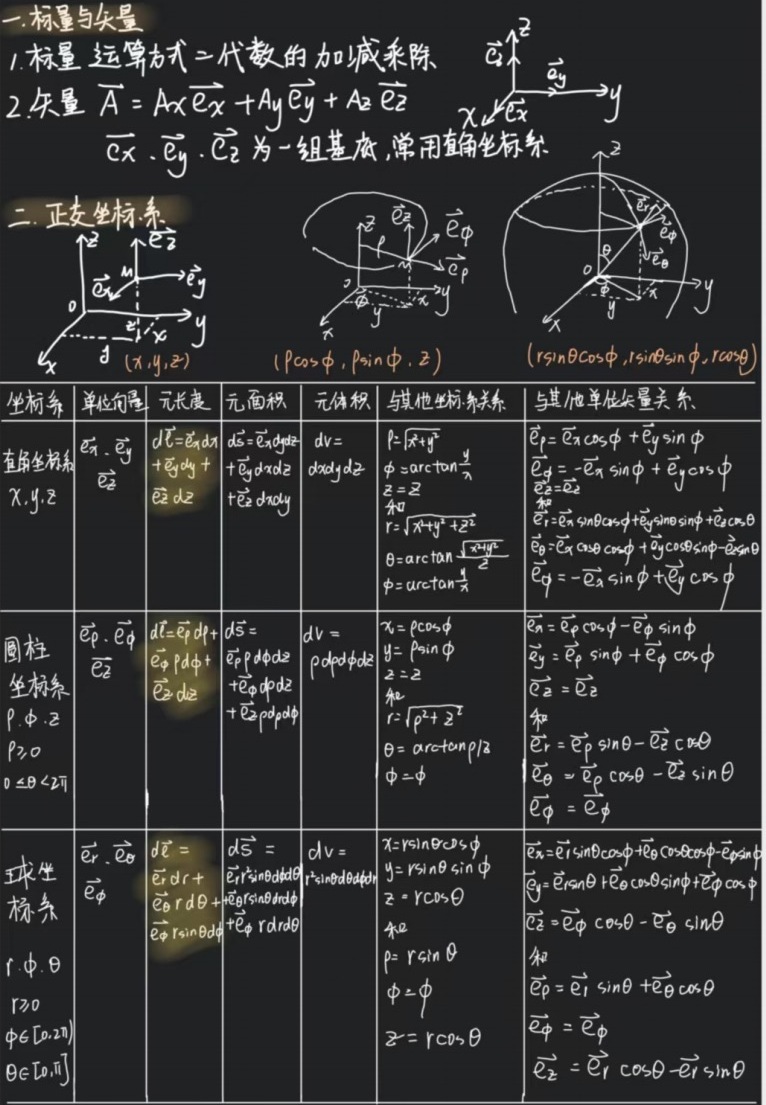 一.标量与矢量
1.标量 运算方式=代数的加减乘除
2.矢量 A⃗ = Ax e⃗x + Ay e⃗y + Az e⃗z
e⃗x、e⃗y、e⃗z 为一组基底,常用直角坐标系
z
e⃗z
e⃗y
y
x
e⃗x
二.正交坐标系
z
e⃗z
M
e⃗x
e⃗y
O
z
x
y
y
x
(x,y,z)
z
e⃗z
e⃗ϕ
ρ
M
e⃗ρ
ϕ
x
y
y
x
(ρcosϕ, ρsinϕ, z)
z
e⃗r
e⃗ϕ
θ
e⃗θ
O
ϕ
x
y
y
x
(rsinθcosϕ, rsinθsinϕ, rcosθ)
坐标系 单位向量 元长度 元面积 元体积 与其他坐标系关系 与其他单位矢量关系
直角坐标系
x,y,z
e⃗x、e⃗y
e⃗z
dl⃗=e⃗xdx
+e⃗ydy+
e⃗zdz
ds⃗=e⃗xdydz
+e⃗ydxdz
+e⃗zdxdy
dv=
dxdydz
ρ=√(x²+y²)
ϕ=arctan y/x
z=z
和
r=√(x²+y²+z²)
θ=arctan √(x²+y²)/z
ϕ=arctan y/x
e⃗ρ=e⃗xcosϕ+e⃗ysinϕ
e⃗ϕ=-e⃗xsinϕ+e⃗ycosϕ
e⃗z=e⃗z
和
e⃗r=e⃗xsinθcosϕ+e⃗ysinθsinϕ+e⃗zcosθ
e⃗θ=e⃗xcosθcosϕ+e⃗ycosθsinϕ-e⃗zsinθ
e⃗ϕ=-e⃗xsinϕ+e⃗ycosϕ
圆柱
坐标系
ρ.ϕ.z
ρ≥0
0≤θ<2π
e⃗ρ、e⃗ϕ
e⃗z
dl⃗=e⃗ρdρ+
e⃗ϕρdϕ+
e⃗zdz
ds⃗=
e⃗ρρdϕdz
+e⃗ϕdρdz
+e⃗zρdρdϕ
dv=
ρdρdϕdz
x=ρcosϕ
y=ρsinϕ
z=z
和
r=√(ρ²+z²)
θ=arctanρ/z
ϕ=ϕ
e⃗x=e⃗ρcosϕ-e⃗ϕsinϕ
e⃗y=e⃗ρsinϕ+e⃗ϕcosϕ
e⃗z=e⃗z
和
e⃗r=e⃗ρsinθ-e⃗zcosθ
e⃗θ=e⃗ρcosθ-e⃗zsinθ
e⃗ϕ=e⃗ϕ
球坐
标系
r.ϕ.θ
r≥0
ϕ∈[0,2π)
θ∈[0,π]
e⃗r、e⃗θ
e⃗ϕ
dl⃗=
e⃗rdr+
e⃗θrdθ+
e⃗ϕrsinθdϕ
ds⃗=
e⃗rr²sinθdϕdθ
+e⃗θrsinθdrdϕ
+e⃗ϕrdrdθ
dv=
r²sinθdθdϕdr
x=rsinθcosϕ
y=rsinθsinϕ
z=rcosθ
和
ρ=rsinθ
ϕ=ϕ
z=rcosθ
e⃗x=e⃗rsinθcosϕ+e⃗θcosθcosϕ-e⃗ϕsinϕ
e⃗y=e⃗rsinθ+e⃗θcosθsinϕ+e⃗ϕcosϕ
e⃗z=e⃗ϕcosθ-e⃗θsinθ
和
e⃗ρ=e⃗rsinθ+e⃗θcosθ
e⃗ϕ=e⃗ϕ
e⃗z=e⃗rcosθ-e⃗rsinθ